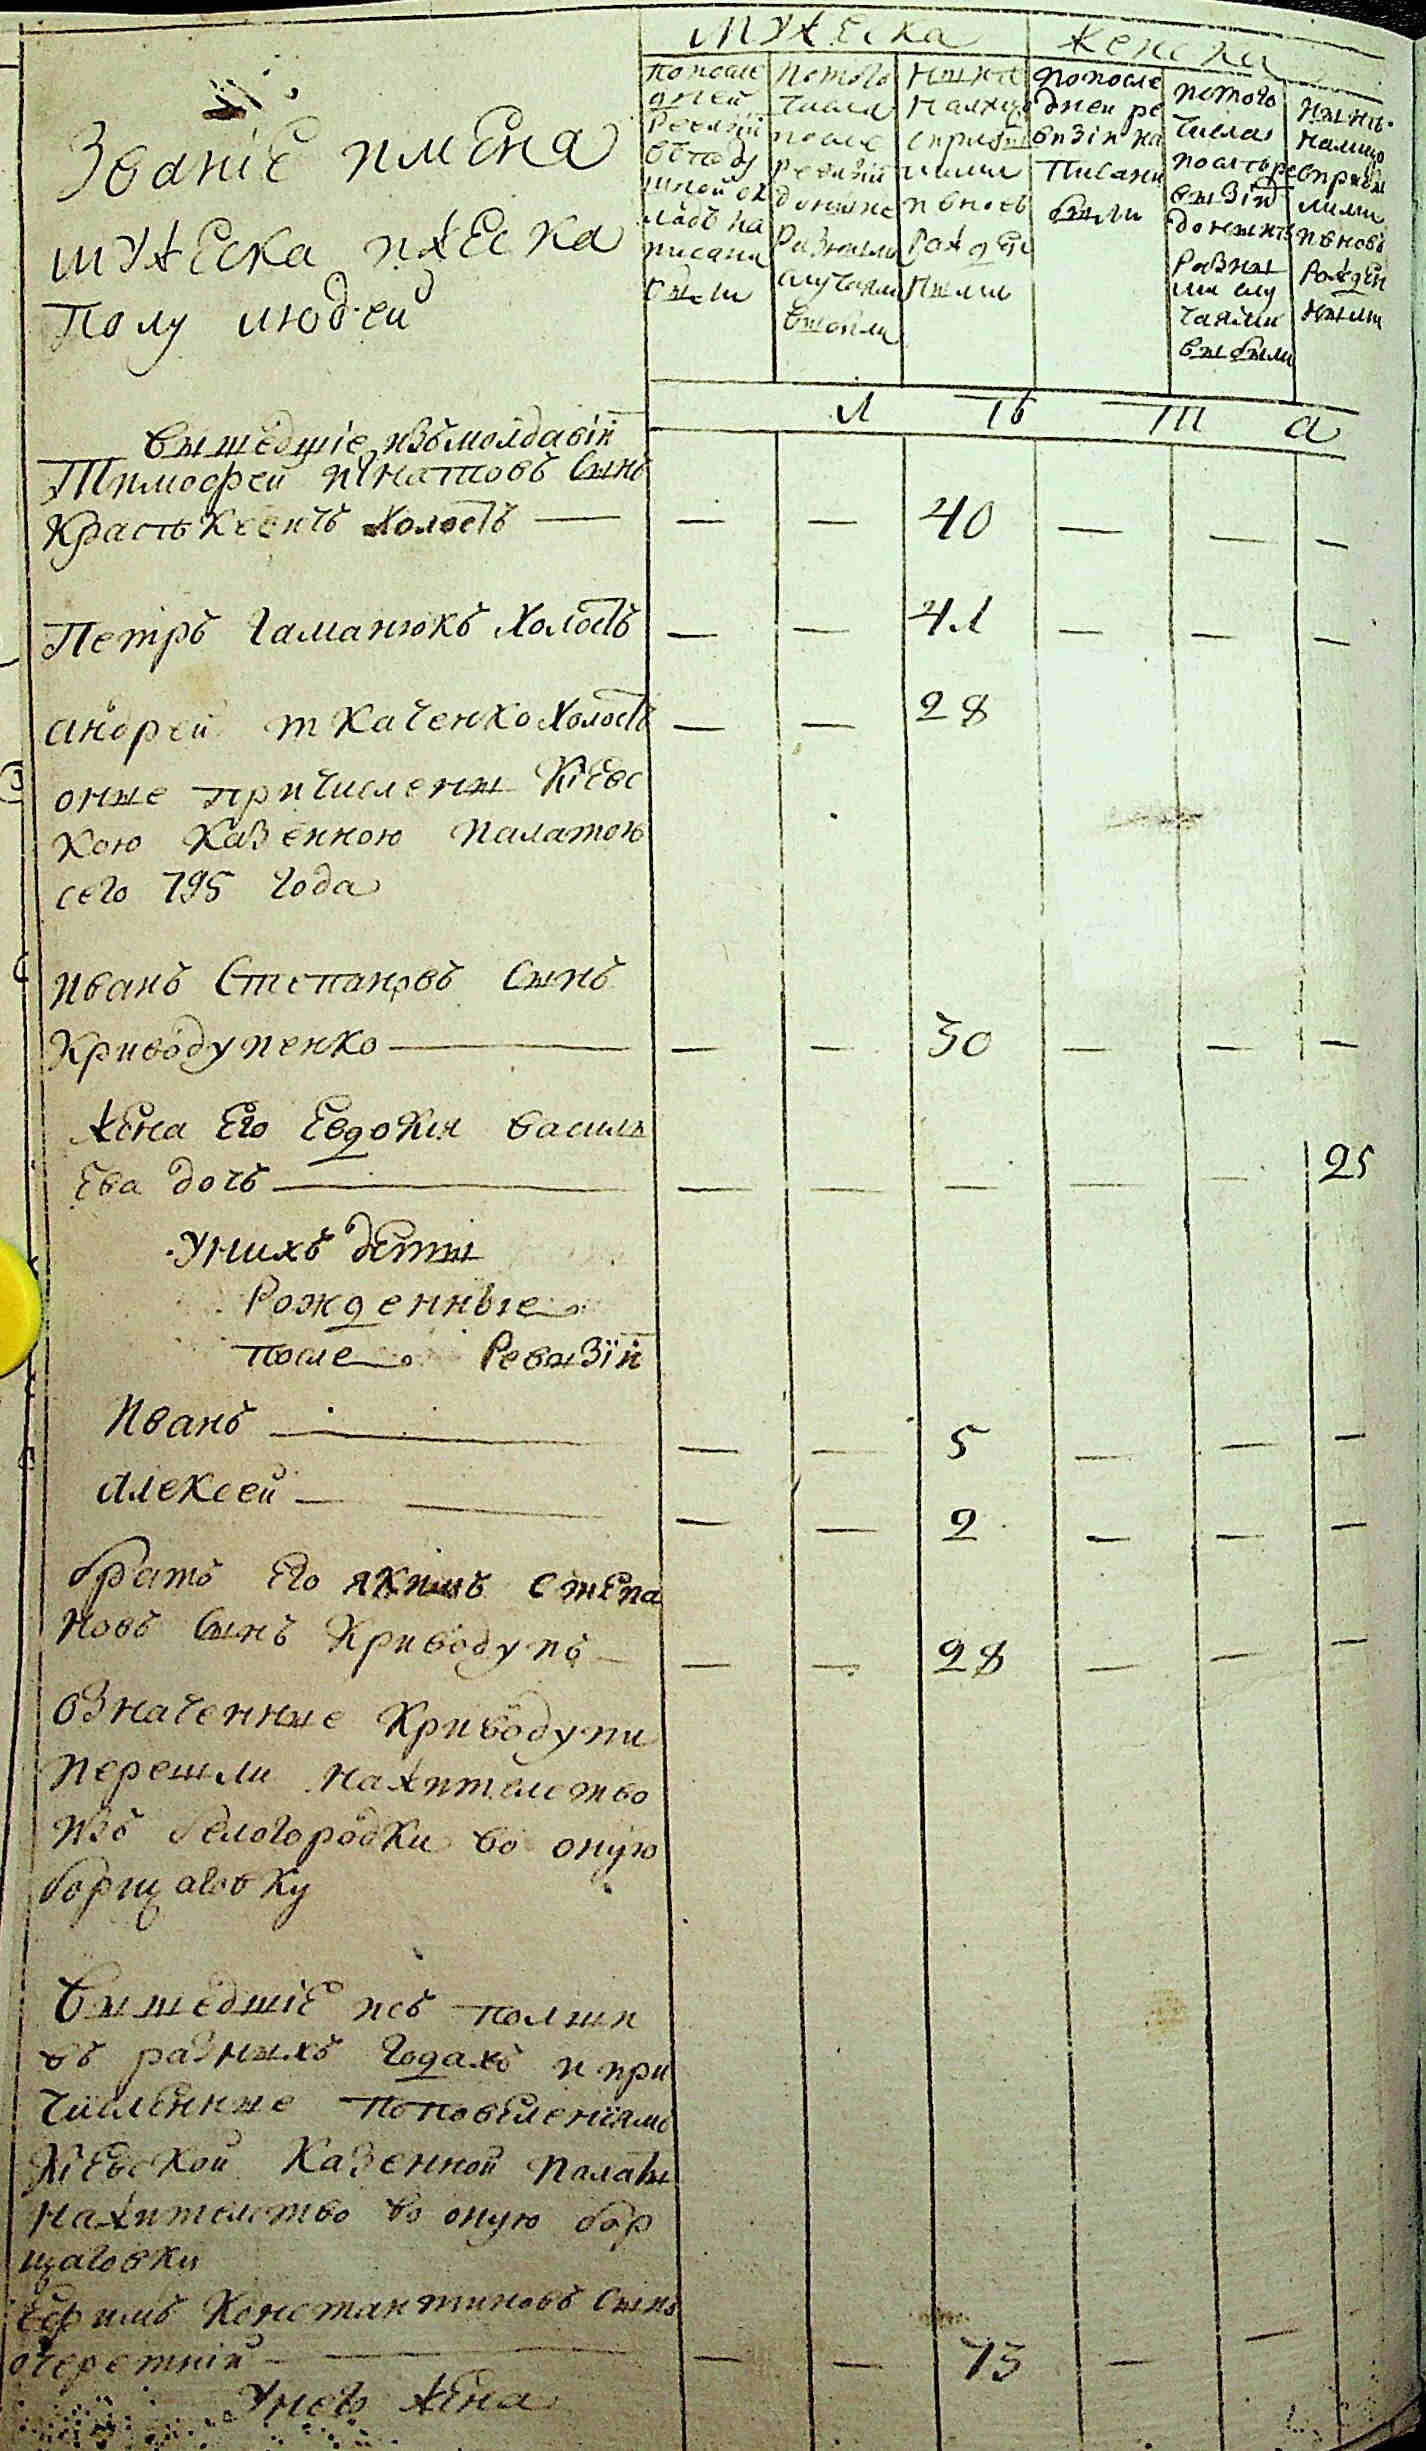 мужеска женска
Званіе имена
мужеска иженска
полу людей
попосле
дней
Ревизіи
вподу
шной ок
ладъ на
писани
были
истого
числа
после
ревизіи
доныне
Разными
случаями
выбыли
ныне
налицо
сприбы
лыми
ивновь
рожден
ными
попосле
дней ре
визіи на
писани
были
истого
числа
послере
визіи
доныне
Разны
ми слу
чаями
выбыли
ныне
налицо
сприбы
лыми
ивновь
рожден
ными
л ѣ т а
вышедшіе измолдавіи
Тимофей Игнатовъ Сынъ
холостъ — — — 40 — — —
Петръ Гаманюкъ Холостъ — — 41 — — —
андрей ткаченко Холостъ — — 28
оные причислены Кіевс
кою Казенною палатою
сего 795 года
иванъ Степановъ Сынъ
Криводупенко — — — 30 — — —
жена Его Евдокия василь
Ева дочь — — — — — — 25
унихъ дети
Рожденные
после Ревизіи
Иванъ — — — 5 — — —
Алексей — — — 2 — — —
братъ Его якимъ степа
новъ Сынъ Криводупъ — — — 28 — — —
означенные Криводупи
перешли нажителство
изъ белогородки во оную
борщаговку
Вышедшіе изъ полши
въ разныхъ годахъ и при
численные поповелениямъ
Кіевской Казенной палаты
нажителство во оную бор
щаговку
Ефимъ Констант­иновъ Сынъ
очеретній — — — 73 — —
Унего жена